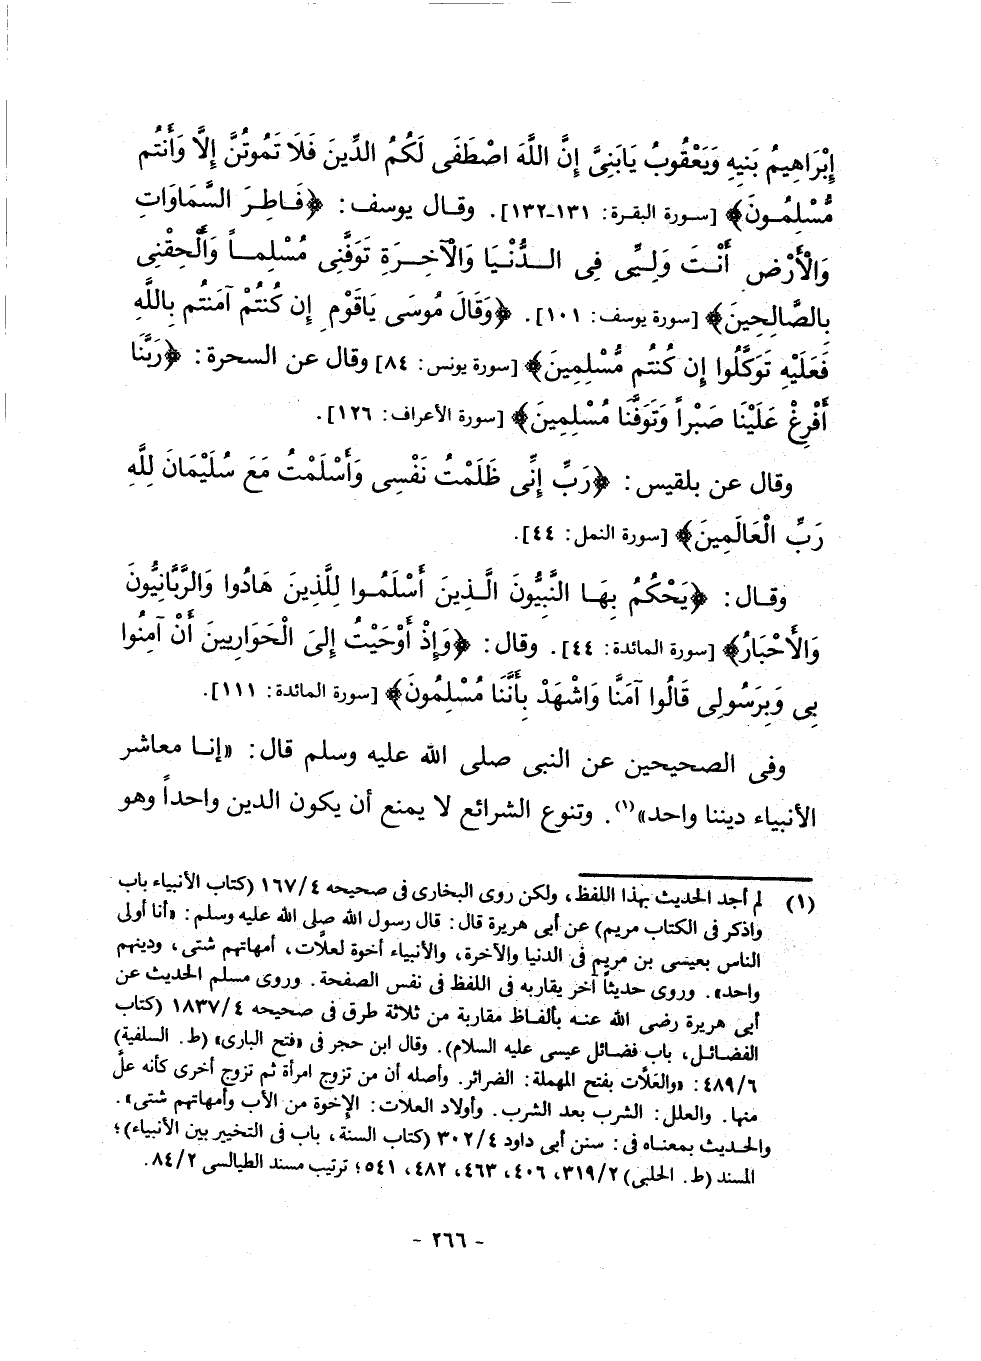 إِبْرَاهِيمُ بَنِيهِ وَيَعْقُوبُ يَابَنِىَّ إِنَّ اللَّهَ اصْطَفَى لَكُمُ الدِّينَ فَلَا تَمُوتُنَّ إِلَّا وَأَنتُم
مُّسْلِمُونَ﴾ [سورة البقرة: ١٣١-١٣٢]. وقال يوسف: ﴿فَاطِرَ السَّمَاوَاتِ
وَالْأَرْضِ أَنْتَ وَلِيِّى فِى الدُّنْيَا وَالْآخِرَةِ تَوَفَّنِى مُسْلِماً وَأَلْحِقْنِى
بِالصَّالِحِينَ﴾ [سورة يوسف: ١٠١]. ﴿وَقَالَ مُوسَى يَاقَوْمِ إِن كُنْتُمْ آمَنتُم بِاللَّهِ
فَعَلَيْهِ تَوَكَّلُوا إِن كُنتُم مُّسْلِمِينَ﴾ [سورة يونس: ٨٤] وقال عن السحرة: ﴿رَبَّنَا
أَفْرِغْ عَلَيْنَا صَبْراً وَتَوَفَّنَا مُسْلِمِينَ﴾ [سورة الأعراف: ١٢٦].
وقال عن بلقيس: ﴿رَبِّ إِنِّى ظَلَمْتُ نَفْسِى وَأَسْلَمْتُ مَعَ سُلَيْمَانَ لِلَّهِ
رَبِّ الْعَالَمِينَ﴾ [سورة النمل: ٤٤].
وقال: ﴿يَحْكُمُ بِهَا النَّبِيُّونَ الَّذِينَ أَسْلَمُوا لِلَّذِينَ هَادُوا وَالرَّبَّانِيُّونَ
وَالْأَحْبَارُ﴾ [سورة المائدة: ٤٤]. وقال: ﴿وَإِذْ أَوْحَيْتُ إِلَى الْحَوَارِيينَ أَنْ آمِنُوا
بِى وَبِرَسُولِى قَالُوا آمَنَّا وَاشْهَدْ بِأَنَّنَا مُسْلِمُونَ﴾ [سورة المائدة: ١١١].
وفى الصحيحين عن النبى صلى الله عليه وسلم قال: «إنا معاشر
الأنبياء ديننا واحد»(١). وتنوع الشرائع لا يمنع أن يكون الدين واحداً وهو
(١) لم أجد الحديث بهذا اللفظ، ولكن روى البخارى فى صحيحه ١٦٧/٤ (كتاب الأنبياء باب
واذكر فى الكتاب مريم) عن أبى هريرة قال: قال رسول الله صلى الله عليه وسلم: «أنا أولى
الناس بعيسى بن مريم فى الدنيا والآخرة، والأنبياء أخوة لعلَّات، أمهاتهم شتى، ودينهم
واحد». وروى حديثاً آخر يقاربه فى اللفظ فى نفس الصفحة. وروى مسلم الحديث عن
أبى هريرة رضى الله عنه بألفاظ مقاربة من ثلاثة طرق فى صحيحه ١٨٣٧/٤ (كتاب
الفضائل، باب فضائل عيسى عليه السلام). وقال ابن حجر فى «فتح البارى» (ط. السلفية)
٤٨٩/٦: «والعَلَّات بفتح المهملة: الضرائر. وأصله أن من تزوج امرأة ثم تزوج أخرى كأنه علَّ
منها. والعلل: الشرب بعد الشرب. وأولاد العلات: الإخوة من الأب وأمهاتهم شتى».
والحديث بمعناه فى: سنن أبى داود ٣٠٢/٤ (كتاب السنة، باب فى التخيير بين الأنبياء)؛
المسند (ط. الحلبى) ٣١٩/٢، ٤٠٦، ٤٦٣، ٤٨٢، ٥٤١؛ ترتيب مسند الطيالسى ٨٤/٢.
- ٢٦٦ -